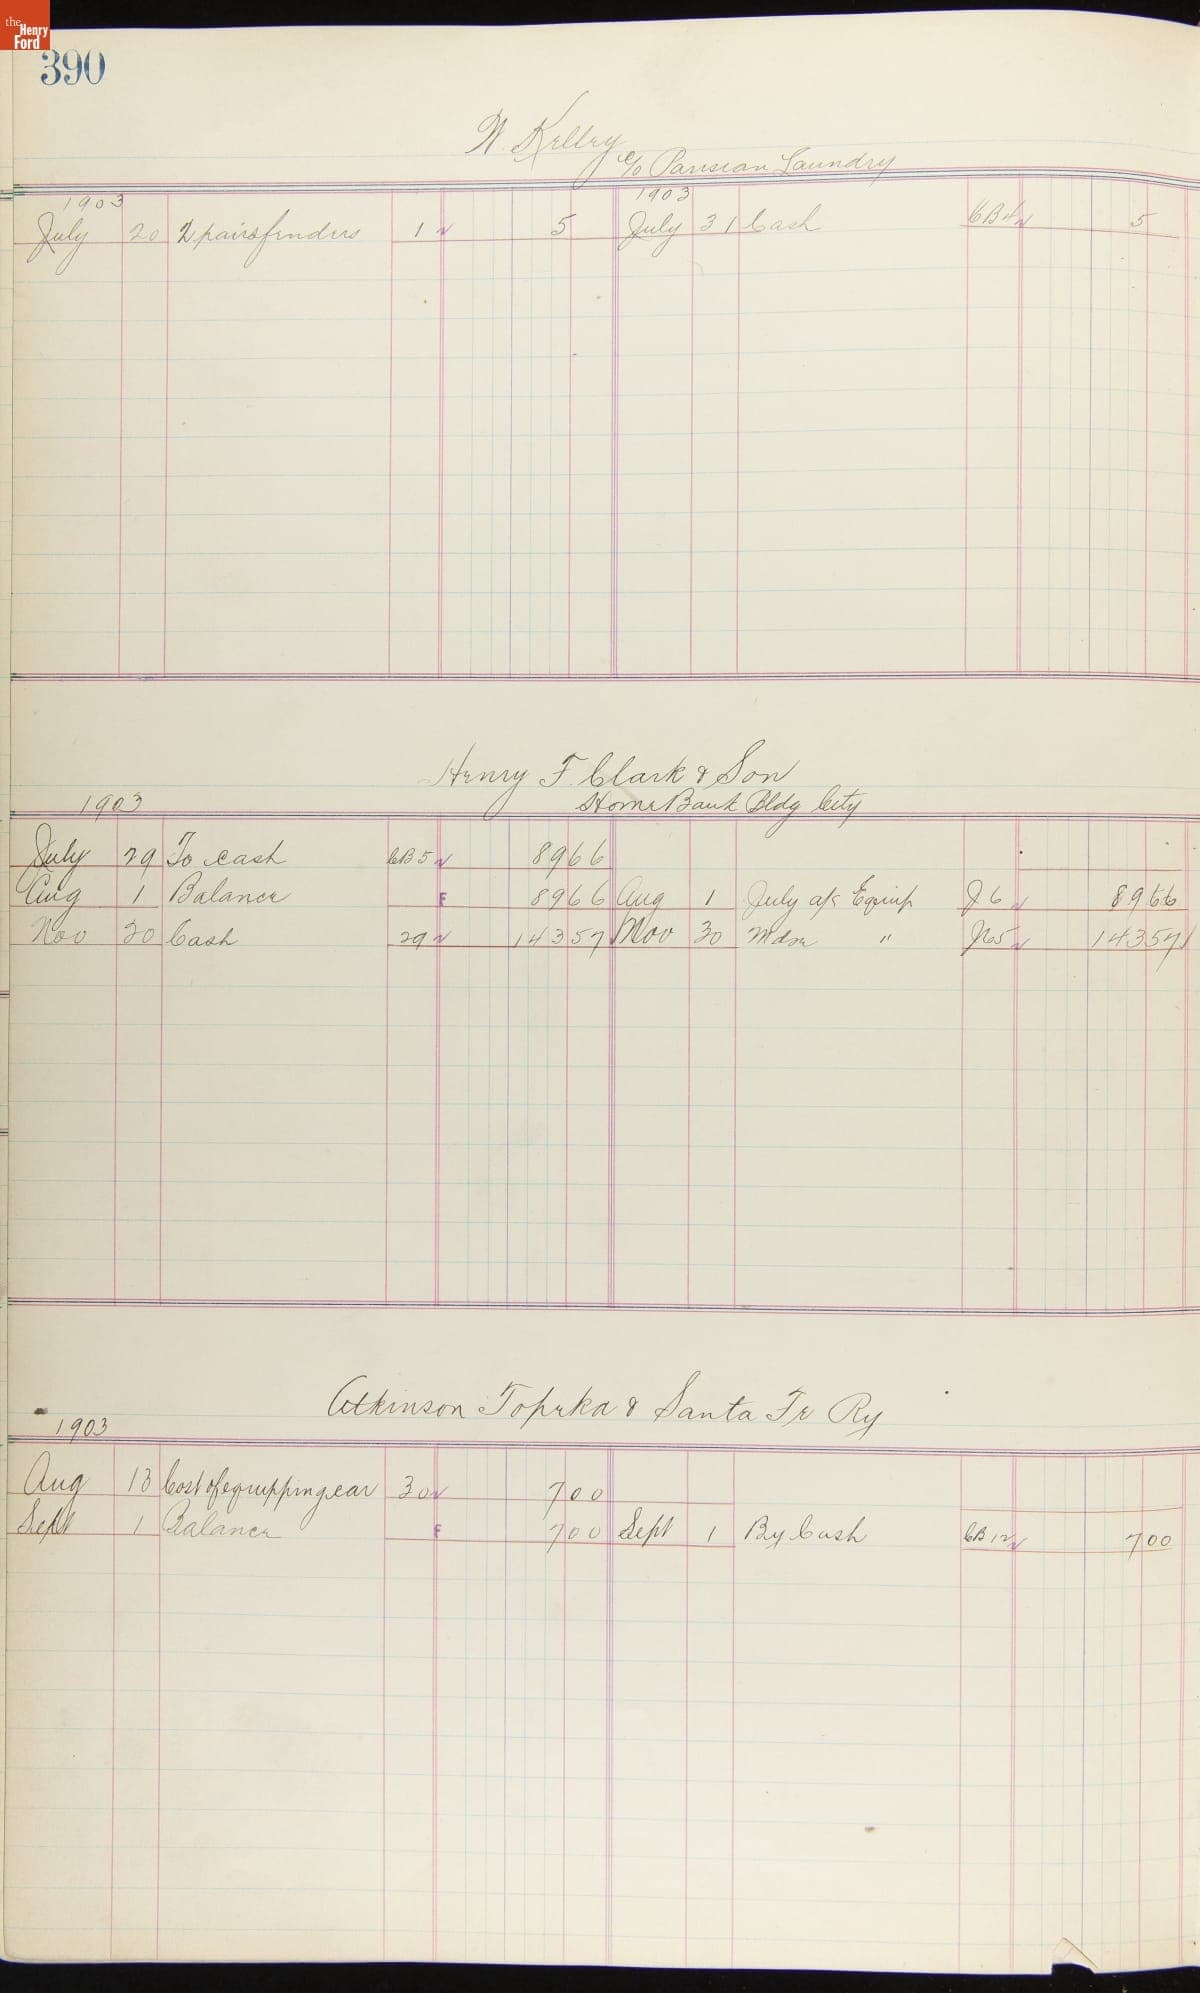 the Henry Ford
390
W. Kelley
c/o Parisian Laundry
1903 1903
July 20 2 pairs fenders 1 5 July 31 Cash CB4 5
Henry F. Clark & Son
1903 Home Bank Bldg City
July 29 To cash CB5 8966
Aug 1 Balance F 8966 Aug 1 July a/c Equip J6 8966
Nov 30 Cash 29 14357 Nov 30 Mdse " 14357
Atkinson Topeka & Santa Fe Ry
1903
Aug 13 Cost of equipping car 30 700
Sept 1 Balance F 700 Sept 1 By Cash CB12 700